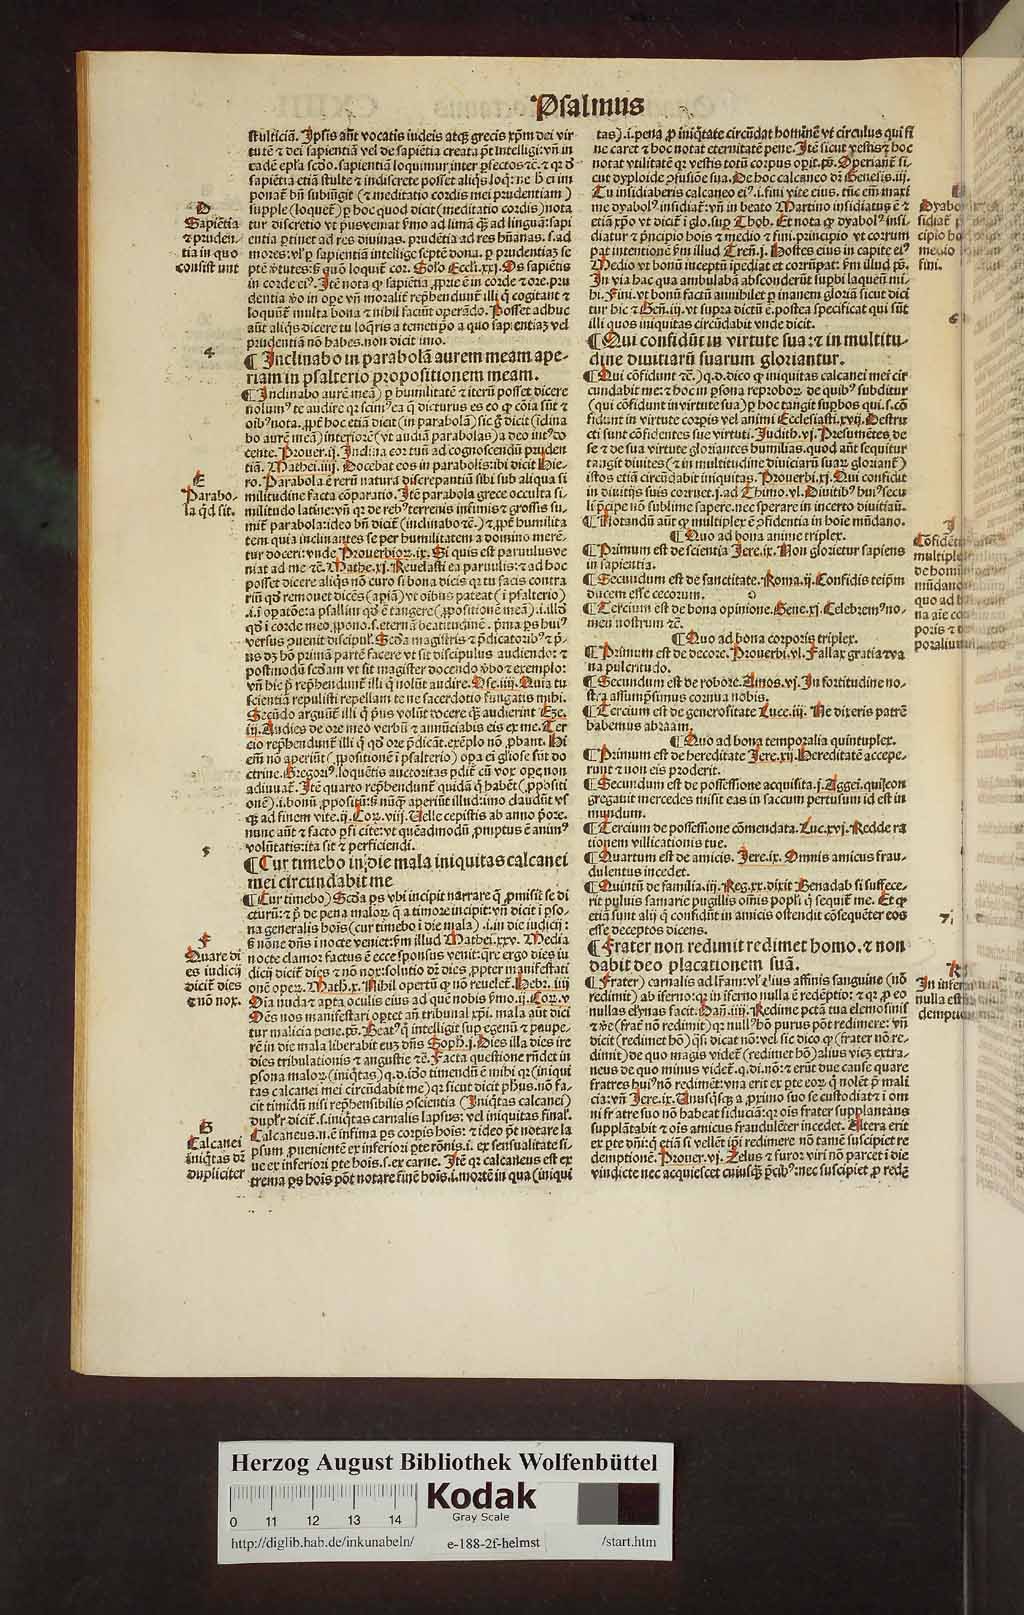 Psalmus
stulticiā. Ipsis aūt vocatis iudeis atq; grecis xp̄m dei vir
tutē ⁊ dei sapientiā vel de sapiētia creata p̄t intelligi: vn̄ in
sapiētia etiā stulte ⁊ indiscrete posset aliq̄s
ponat bn̄ subiūgit (⁊ meditatio cordis mei prudentiam)
supple (loquet) ꝑ hoc quod dicit (meditatio cordis) nota
entia ꝑtinet ad res diuinas. prudētia ad res hūanas. s. ad
in corde eiꝰ. Itē nota ꝙ sapiētia ꝓprie ē in corde ⁊ ore. pru
dentia ꝟo in ope vn̄ moralit̄ rep̄hendunt̄ illi q̄ cogitant ⁊
loquunt̄ multa bona ⁊ nihil faciūt operādo. Posset adhuc
aūt aliq̄s dicere tu loq̄ris a temetip̄o a quo sapientiaz vel
prudentiā nō habes. non dicit imo.
¶ Inclinabo in parabolā aurem meam ape-
riam in psalterio propositionem meam.
¶ Inclinabo aurē meā) ꝑ humilitatē ⁊ iterū posset dicere
bo aurē meā) interiorē (vt audiā parabolas) a deo intꝰ do
cente. Prouer. ij. Inclina cor tuū ad cognoscendū pruden
tiā. Mathei. iiij. Docebat eos in parabolis: ibi dicit Hie-
ro. Parabola ē rerū natura discrepantiū sibi sub aliqua si
militudine facta cōparatio. Itē parabola grece occulta si-
militudo latine: vn̄ qꝛ de rebꝰ terrenis infimis ⁊ grossis su-
mit̄ parabola: ideo bn̄ dicit (inclinabo ⁊c.) ⁊ ꝓpt̄ humilita
tem quia inclinantes se per humilitatem a domino merē-
tur doceri: vnde Prouerbioꝝ. ix. Si quis est paruulus ve
niat ad me ⁊c. Mathe. xj. Reuelasti ea paruulis: ⁊ ad hoc
posset dicere aliq̄s nō curo si bona dicis qꝛ tu facis contra
versus ꝯuenit discipul̄. Scd̄a magistris ⁊ p̄dicatoribꝰ ⁊ p̄-
postmodū scd̄am vt sit magister docendo ꝟbo ⁊ exemplo:
vn̄ hic p̄ rep̄hendunt̄ illi q̄ nolūt audire. Ose. iiij. Quia tu
scientiam repulisti repellam te ne sacerdotio fungaris mihi.
Secūdo arguūt̄ illi q̄ p̄us volūt docere q̄ꝫ audierint Eze.
iij. Audies de ore meo verbū ⁊ annūciabis eis ex me. Ter
cio rep̄hendunt̄ illi q̄ qd̄ ore p̄dicāt. exēplo nō ꝓbant. Hi
ctrine. Gregoriꝰ. loquētis auctoritas
adiuuat̄. Itē quarto rep̄hendunt̄ quidā q̄ habēt (ꝓpositi
ꝙ ad finem vite. ij. Cor. viij. Velle cepistis ab anno p̄ore.
nunc aūt ⁊ facto ꝑficite: vt quēadmodū ꝓmptus ē animꝰ
volūtatis: ita sit ⁊ perficiendi.
¶ Cur timebo in die mala iniquitas calcanei
mei circundabit me
¶ (Cur timebo) Scd̄a ps vbi incipit narrare q̄ ꝓmisit se di
cturū: ⁊ p̄ de pena maloꝝ q̄ a timore incipit: vn̄ dicit ī ꝑso-
na generalis hoīs (cur timebo ī die mala) .i. in die iudicij:
ꝟ nōne dn̄s ī nocte veniet: ꝟm illud Mathei. xxv. Media
nocte clamor factus ē ecce sponsus venit: q̄re ergo dies iu
dicij dicit̄ dies ⁊ nō nox: solutio dꝛ dies ꝓpter manifestati
onē oꝑꝝ. Math. x. Nihil opertū q̄ nō reuelet̄. Hebr. iiij
Oīa nuda ⁊ apta oculis eius ad quē nobis ꝟmo. ij. Cor. v
Oēs nos manifestari oꝑtet an̄ tribunal xp̄i. mala aūt dici
tur malicia pene. ps̄. Beatꝰ q̄ intelligit sup egenū ⁊ paupe-
rē in die mala liberabit euꝫ dn̄s Soph. j. Dies illa dies ire
dies tribulationis ⁊ angustie ⁊c. Facta questione rn̄det in
ꝑsona maloꝝ (iniq̄tas) q. d. iō timendū ē mihi qꝛ (iniqui
tas calcanei mei circūdabit me) qꝛ sicut dicit ph̄us. nō fa-
cit timidū nisi rep̄hensibilis ꝯscientia (Iniq̄tas calcanei)
dupl̄r dicit̄. s. iniq̄tas carnalis lapsus: vel iniquitas final̄.
Calcaneus. n. ē infima ps corꝑis hoīs: ⁊ ideo p̄t notare la
psum ꝓuenientē ex inferiori ꝑte rōnis. i. ex sensualitate si-
ue ex inferiori ꝑte hoīs. s. ex carne. Itē qꝛ calcaneus est ex
trema ps hoīs pōt notare finē hoīs. i. mortē in qua (iniqui
D
Sapiētia
⁊ pruden
tia in quo
consistunt
4
E
Parabo-
la qd̄ sit.
5
F
Quare di
es iudicij
dicit̄ dies
⁊ nō nox.
G
Calcanei
iniq̄tas dꝛ
dupliciter
tas) .i. pena ꝓ iniq̄tate circūdat hominē vt circulus qui fi
ne caret ⁊ hoc notat eternitatē pene. Itē sicut vestis ⁊ hoc
notat vtilitatē qꝛ vestis totū corpus oꝑit. ps̄. Operiant̄ si-
cut dyploide ꝯfusiōe sua. De hoc calcaneo dꝛ Genesis. iij.
Tu insidiaberis calcaneo eiꝰ .i. fini vite eius. tūc em̄ maxi
me dyabolꝰ insidiat̄: vn̄ in beato Martino insidiatus ē ⁊
etiā xp̄o vt dicit̄ ī glo. sup Thob. Et nota ꝙ dyabolꝰ insi-
diatur ⁊ p̄ncipio hoīs ⁊ medio ⁊ fini. principio vt corrum
pat intentionē ꝟm illud Tren̄. j. Hostes eius in capite eiꝰ
Medio vt bonū inceptū īpediat ⁊ corrūpat: ꝟm illud ps̄.
In via hac qua ambulabā absconderūt supbi laqueū mi-
hi. Fini. vt bonū factū annihilet ꝑ inanem gloriā sicut dici
tur hic ⁊ Gen̄. iij. vt supra dictū ē. postea specificat qui sūt
illi quos iniquitas circūdabit vnde dicit.
¶ Qui confidūt in virtute sua: ⁊ in multitu-
dine diuitiarū suarum gloriantur.
¶ Qui cōfidunt ⁊c.) q. d. dico ꝙ iniquitas calcanei mei cir
cundabit me: ⁊ hoc in ꝑsona reproboꝝ de quibꝰ subditur
(qui cōfidunt in virtute sua) ꝑ hoc tangit supbos qui. s. cō
fidunt in virtute corꝑis vel animi Ecclesiasti. xvij. Destru
cti sunt cōfidentes sue virtuti. Judith. vj. Presumētes de
se ⁊ de sua virtute gloriantes humilias. quod aūt sequitur
tangit diuites (⁊ in multitudine diuiciarū suaꝝ gloriant̄)
istos etiā circūdabit iniquitas. Prouerbi. xj. Qui confidit
in diuitijs suis corruet. j. ad Thimo. vl. Diuitibꝰ huiꝰ secu
li p̄cipe nō sublime sapere. nec sperare in incerto diuitiaꝝ.
¶ Notandū aūt ꝙ multiplex ē ꝯfidentia in hoīe mūdano.
¶ Quo ad bona anime triplex.
¶ Primum est de scientia Jere. ix. Non glorietur sapiens
in sapientia.
¶ Secundum est de sanctitate. Roma. ij. Confidis teip̄m
ducem esse cecorum.
¶ Tercium est de bona opinione. Gene. xj. Celebremꝰ no-
men nostrum ⁊c.
¶ Quo ad bona corporis triplex.
¶ Primum est de decore. Prouerbi. vl. Fallax gratia ⁊ va
na pulcritudo.
¶ Secundum est de robore. Amos. vj. In fortitudine no-
stra assumpsimus cornua nobis.
¶ Tercium est de generositate Luce. iij. Ne dixeris patrē
habemus abraam.
¶ Quo ad bona temporalia quintuplex.
¶ Primum est de hereditate Jere. xij. Hereditatē accepe-
runt ⁊ non eis proderit.
¶ Secundum est de possessione acquisita. j. Aggei. qui con
gregauit mercedes misit eas in saccum pertusum id est in
mundum.
¶ Tercium de possessione cōmendata. Luc. xvj. Redde ra
tionem villicationis tue.
¶ Quartum est de amicis. Jere. ix. Omnis amicus frau-
dulentus incedet.
¶ Quintū de familia. iij. Reg. xx. dixit Benadab si suffece-
rit puluis samarie pugillis om̄is popl̄i q̄ sequit̄ me. Et ꝙ
etiā sunt alij q̄ confidūt in amicis ostendit cōsequēter eos
esse deceptos dicens.
¶ Frater non redimit redimet homo. ⁊ non
dabit deo placationem suā.
¶ Frater) carnalis ad lr̄am: vl̓ aliꝰ affinis sanguine (nō
redimit) ab iferno: qꝛ in iferno nulla ē redēptio: ⁊ qꝛ ꝓ eo
nullas elynas facit. Dan̄. iiij. Redime pctā tua elemosinis
⁊ ꝟe (frat̄ nō redimit) qꝛ nullꝰ hō purus pōt redimere: vn̄
dicit (redimet hō) q̄si. dicat nō: vel sic dico ꝙ (frater nō re-
dimit) de quo magis videt̄ (redimet hō) alius vicꝫ extra-
neus de quo minus videt̄. q. di. nō: ⁊ erūt due cause quare
fratres huiꝰ nō redimēt: vna erit ex ꝑte eoꝝ q̄ nolēt ꝑ mali
cia: vn̄ Jere. ix. Unusq̄sq̄ a ꝓximo suo se custodiat ⁊ ī om
ni fratre suo nō habeat fiduciā: qꝛ oīs frater supplantans
supplātabit ⁊ oīs amicus fraudulēter incedet. Altera erit
ex ꝑte dn̄i: q̄ etiā si vellēt ip̄i redimere nō tamē suscipiet re
demptionē. Prouer. vj. Zelus ⁊ furor viri nō parcet ī die
vindicte nec acquiescet cuiusq̄ꝫ p̄cibꝰ: nec suscipiet ꝓ redē
6
7
K
Herzog August Bibliothek Wolfenbüttel
0 11 12 13 14
Kodak
Gray Scale
http://diglib.hab.de/inkunabeln/ e-188-2f-helmst /start.htm